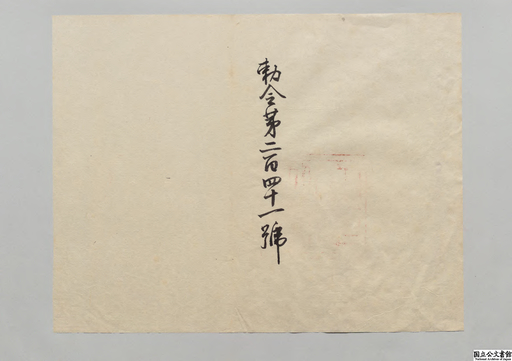 勅令第二百四十一號
国立公文書館
National Archives of Japan